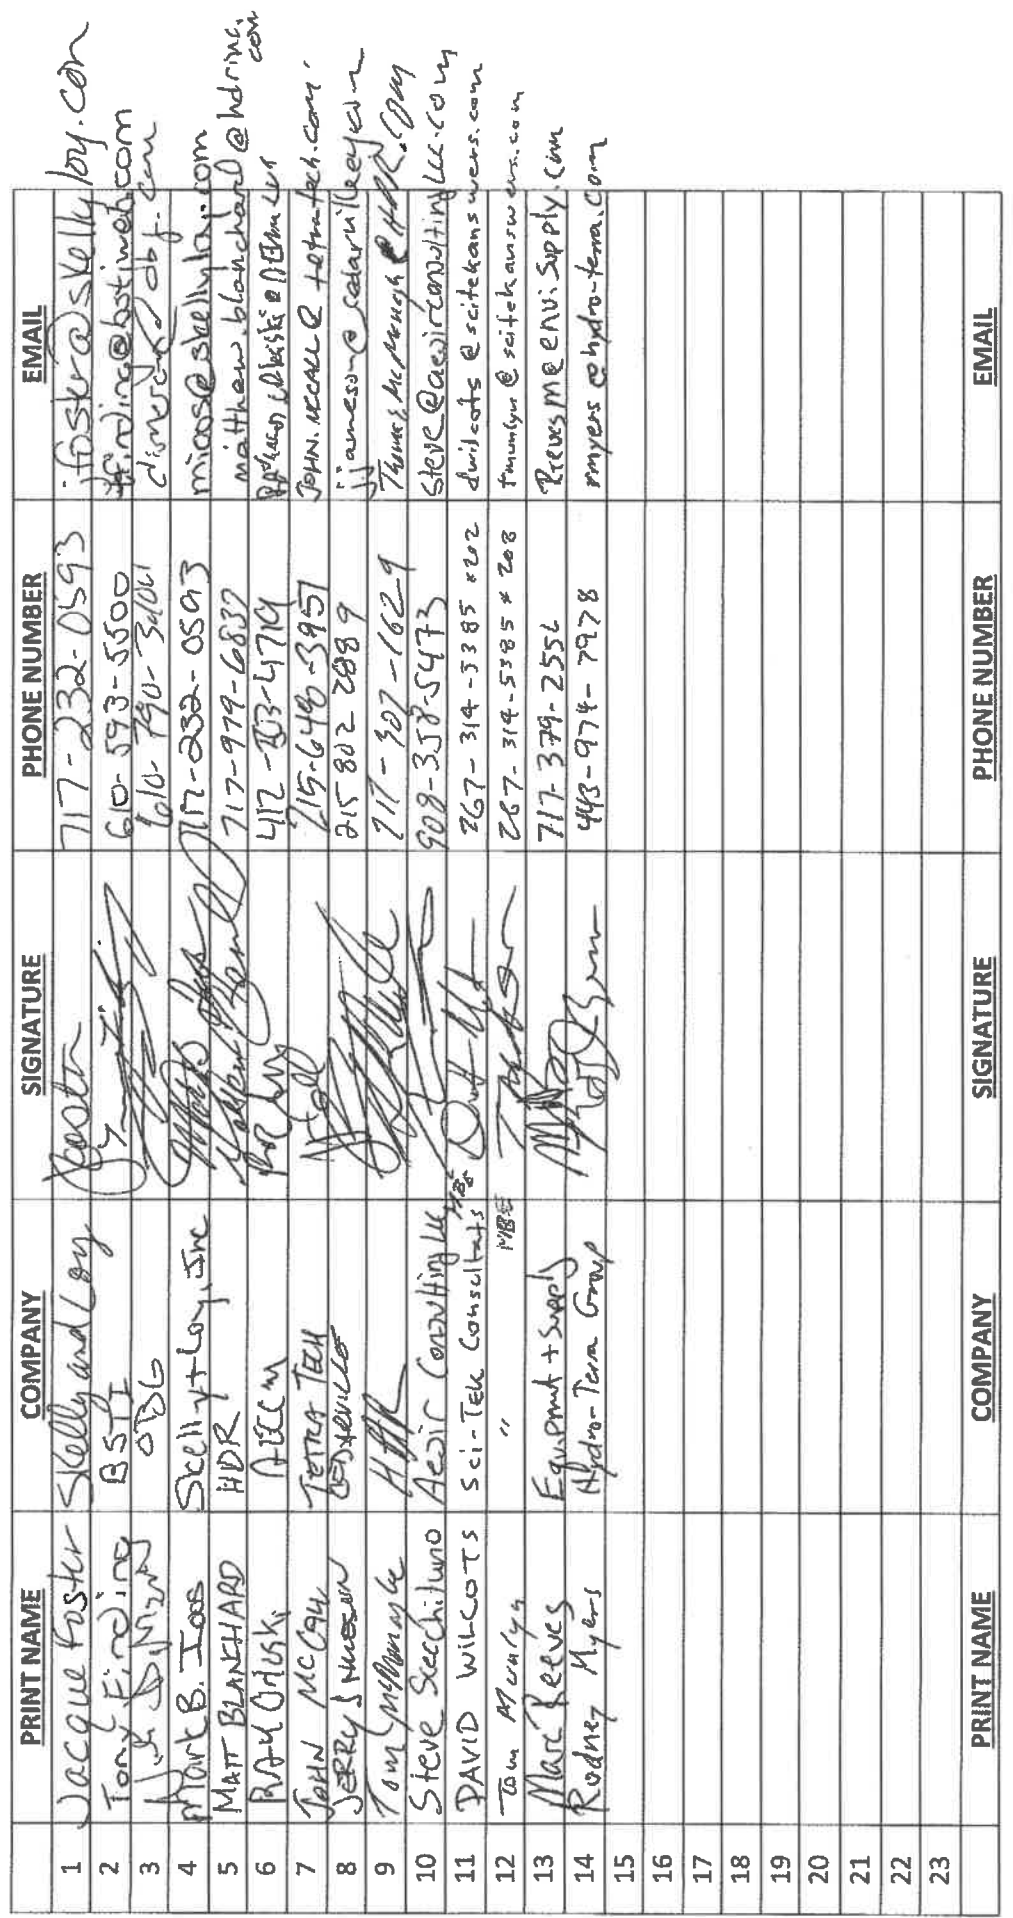 PRINT NAME COMPANY SIGNATURE PHONE NUMBER EMAIL
1 Jacque Foster Skelly and Loy 717-232-0593 jfoster@skellyloy.com
2 Tony Finding BSTI 610-593-5500 tfinding@bstiweb.com
3 OBG 610-790-
4 Mark B. Ioos Skelly + Loy, Inc 717-232-0593 mioos@skellyloy.com
5 MATT BLANCHARD HDR 717-979-6837 matthew.blanchard@hdrinc.com
6 RAY AECOM 412-
7 JOHN MCCALL TETRA TECH 215-640-3957 JOHN.MCCALL@tetratech.com
8 JERRY JAMESON CEDARVILLE 215 802 2889 jjameson@
9 Tom HDR 717-307-1629
10 Steve Scecchituno Aedir Consulting LLC 908-358-5473 Steve@aedirconsultingLLC.com
11 DAVID WILCOTS Sci-Tek Consultants MBE 267-314-5385 x202 dwilcots@scitekanswers.com
12 Tom " MBE 267-314-5385 x 203 @scitekanswers.com
13 Marc Reeves Equipment + Supply 717-379-2556 ReevesM@envisupply.com
14 Rodney Myers Hydro-Terra Group 443-974-7978 rmyers@hydro-terra.com
15
16
17
18
19
20
21
22
23
PRINT NAME COMPANY SIGNATURE PHONE NUMBER EMAIL